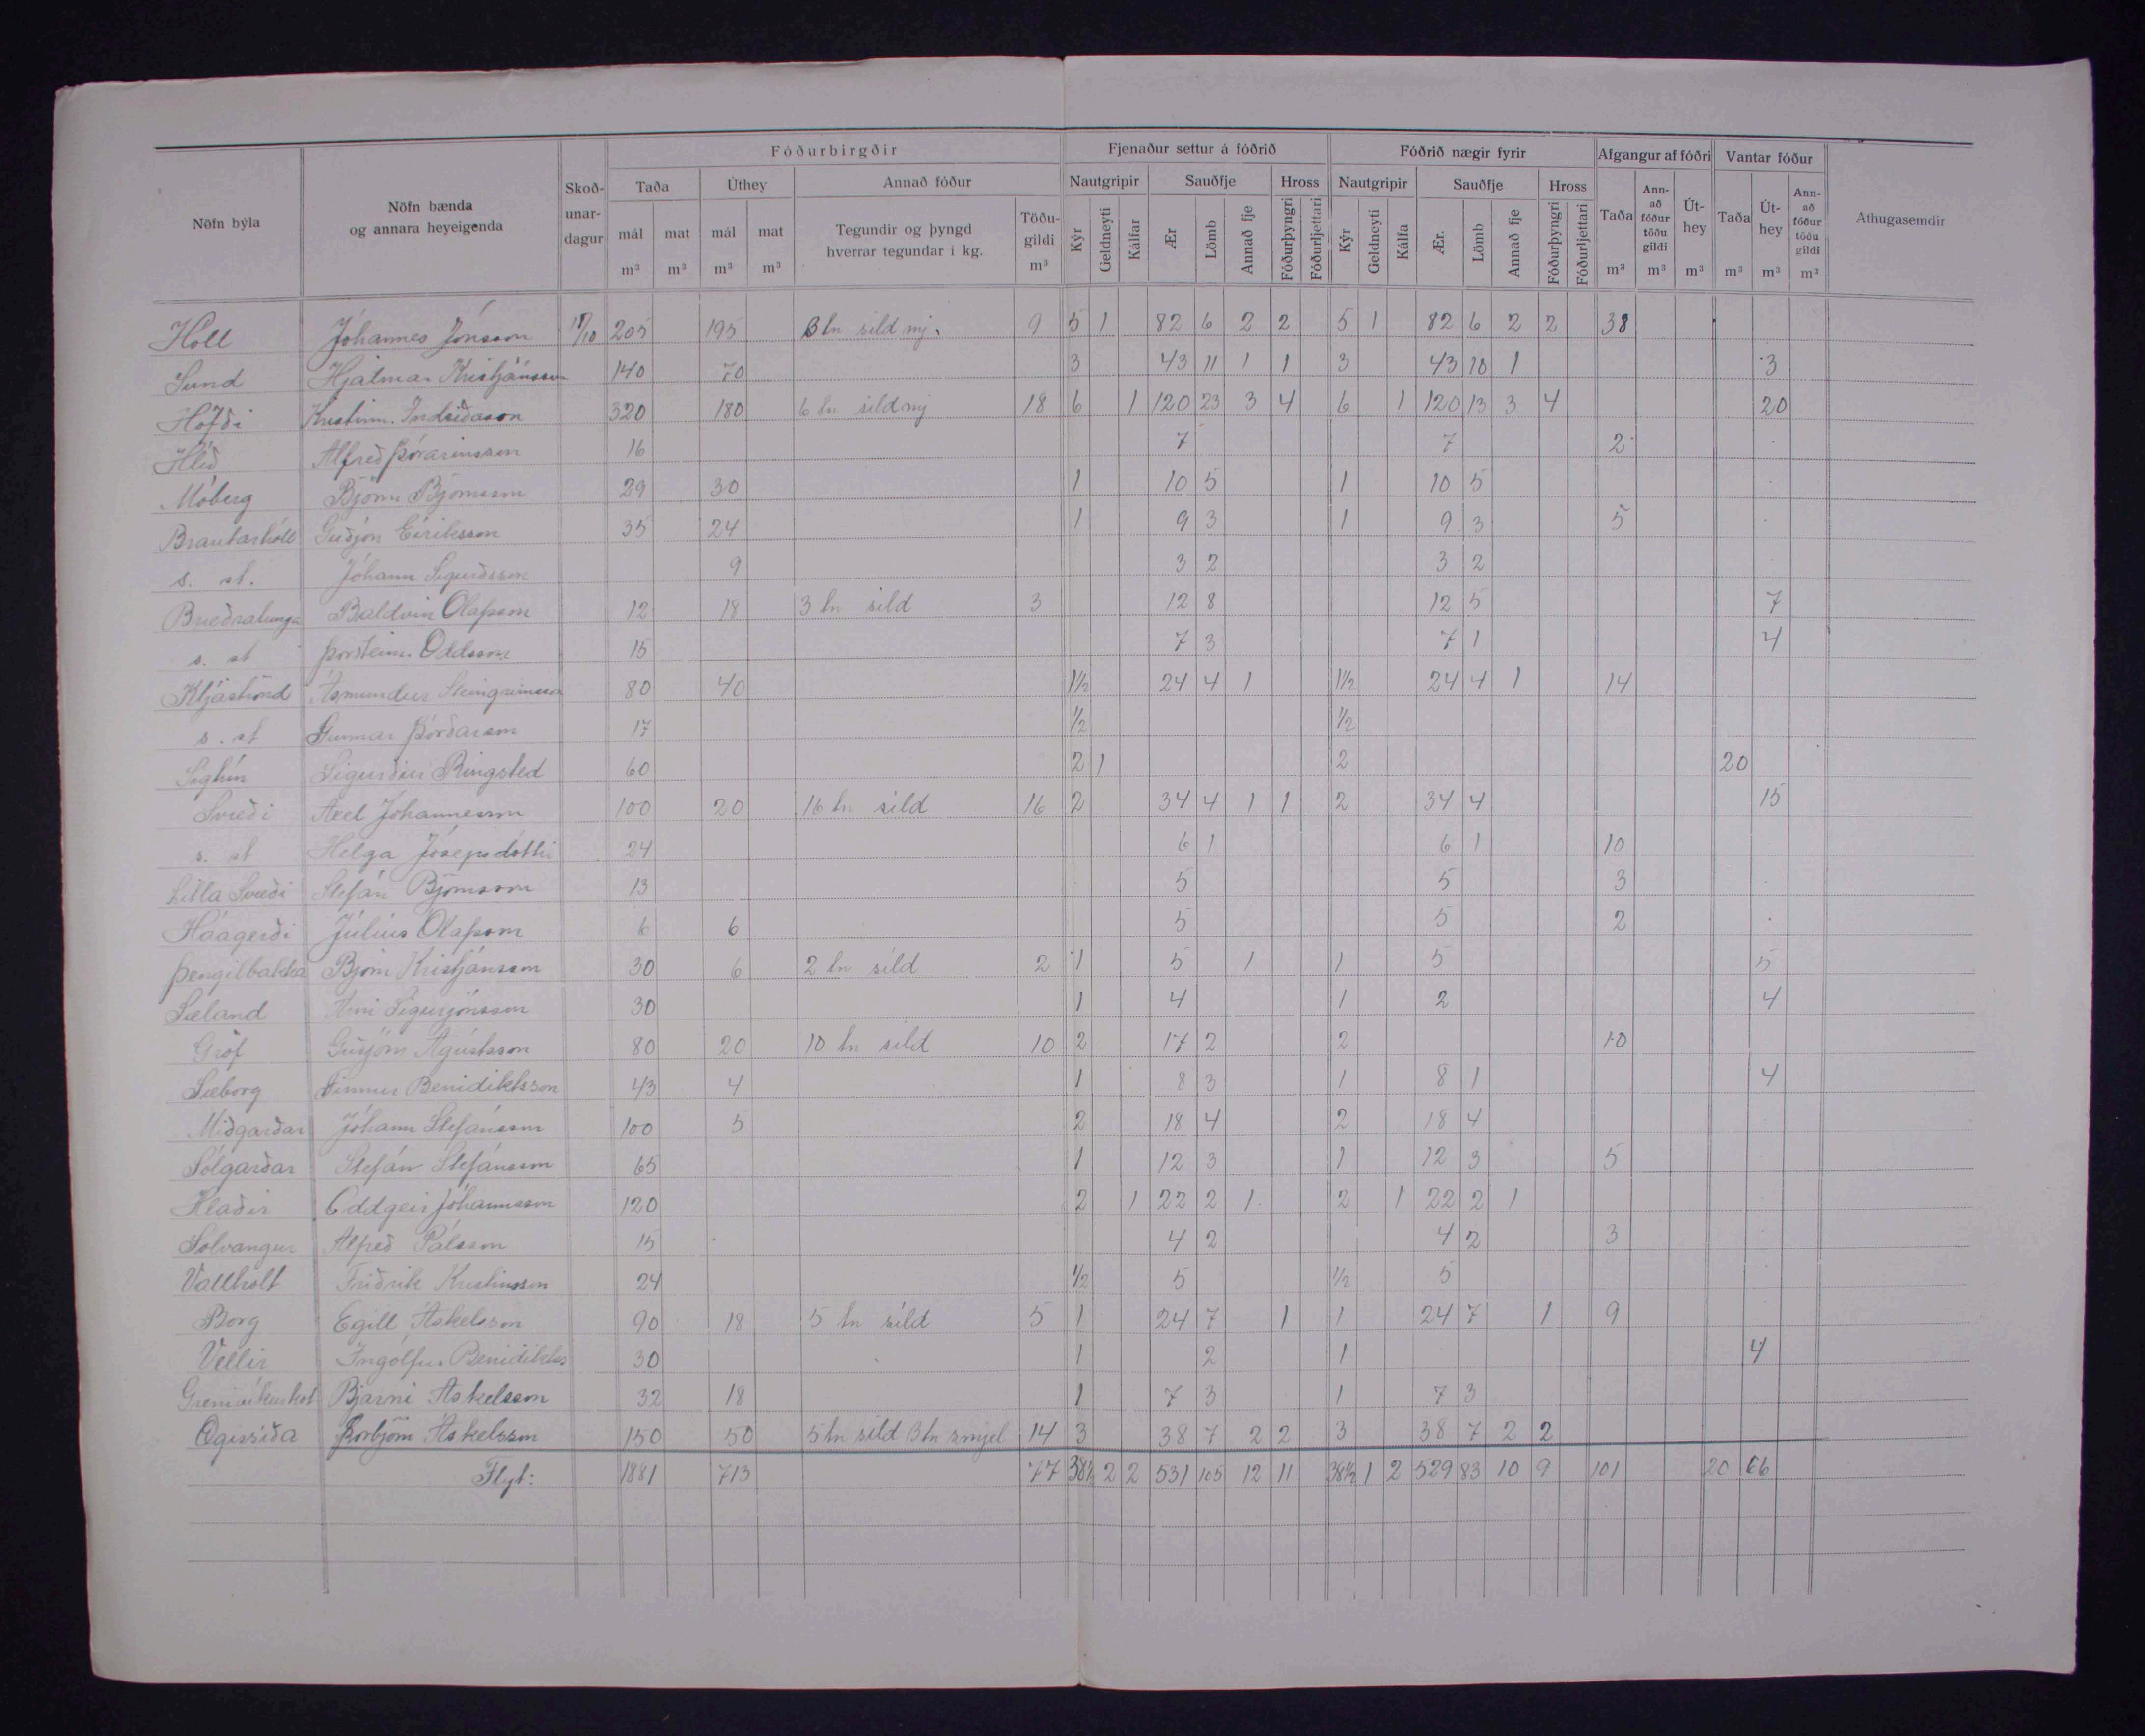 Fóðurbirgðir Fjenaður settur á fóðrið Fóðrið nægir fyrir Afgangur af fóðri Vantar fóður
Nöfn býla Nöfn bænda og annara heyeigenda Skoðunardagur Taða Úthey Annað fóður Nautgripir Sauðfje Hross Nautgripir Sauðfje Hross Taða Annað fóður töðu gildi Úthey Taða Úthey Annað fóður töðu gildi Athugasemdir
mál mat mál mat Tegundir og þyngd hverrar tegundar í kg. Töðugildi Kýr Geldneyti Kálfar Ær Lömb Annað fje Fóðurþyngri Fóðurljettari Kýr Geldneyti Kálfa Ær. Lömb Annað fje Fóðurþyngri Fóðurljettari
m³ m³ m³ m³ m³ m³ m³ m³ m³ m³ m³
Hóll Jóhannes Jónsson 205 195 3 tn síld mj. 9 5 1 82 6 2 2 5 1 82 6 2 2 38
Sund Hjalmar Kristjánsson 140 70 3 43 11 1 1 3 43 10 1 3
Höfði Kristinn Indriðason 320 180 6 tn síld mj 18 6 1 120 23 3 4 6 1 120 13 3 4 20
Hlíð Alfreð Þórarinsson 16 7 7 2
Móberg Björn Björnsson 29 30 1 10 5 1 10 5
Brautarhóll Guðjón Eiríksson 35 24 1 9 3 1 9 3 5
s. st. Jóhann Sigurðsson 9 3 2 3 2
Bræðratunga Baldvin Olafsson 12 18 3 tn síld 3 12 8 12 5 7
s. st Þorsteinn Oddsson 15 7 3 7 1 4
Kljáströnd Ásmundur Steingrímsson 80 40 1½ 24 4 1 1½ 24 4 1 14
s. st Gunnar Þórðarson 17 ½ ½
Sigtún Sigurður Ringsted 60 2 1 2 20
Svæði Axel Jóhannesson 100 20 16 tn síld 16 2 34 4 1 1 2 34 4 15
s. st Helga Jósepsdóttir 24 6 1 6 1 10
Litla Svæði Stefán Björnsson 13 5 5 3
Háagerði Júlíus Olafsson 6 6 5 5 2
Þengilbakka Björn Kristjánsson 30 6 2 tn síld 2 1 5 1 1 5 5
Sæland Árni Sigurjónsson 30 1 4 1 2 4
Gröf Guðjón Agústsson 80 20 10 tn síld 10 2 17 2 2 10
Sæborg Finnur Benidiktsson 43 4 1 8 3 1 8 1 4
Miðgarðar Jóhann Stefánsson 100 5 2 18 4 2 18 4
Sólgarðar Stefán Stefánsson 65 1 12 3 1 12 3 5
Hlaðir Oddgeir Jóhannsson 120 2 1 22 2 1 2 1 22 2 1
Sólvangur Alfreð Pálsson 15 4 2 4 2 3
Vallholt Friðrik Kristinsson 24 ½ 5 ½ 5
Borg Egill Áskelsson 90 18 5 tn síld 5 1 24 7 1 1 24 7 1 9
Vellir Ingólfur Benidikts 30 1 2 1 4
Grenivíkurkot Bjarni Áskelsson 32 18 1 7 3 1 7 3
Ægissíða Þorbjörn Áskelsson 150 50 5 tn síld 3 tn s.mjel 14 3 38 7 2 2 3 38 7 2 2
Flyt: 1881 713 77 38½ 2 2 531 105 12 11 38½ 1 2 529 83 10 9 101 20 66